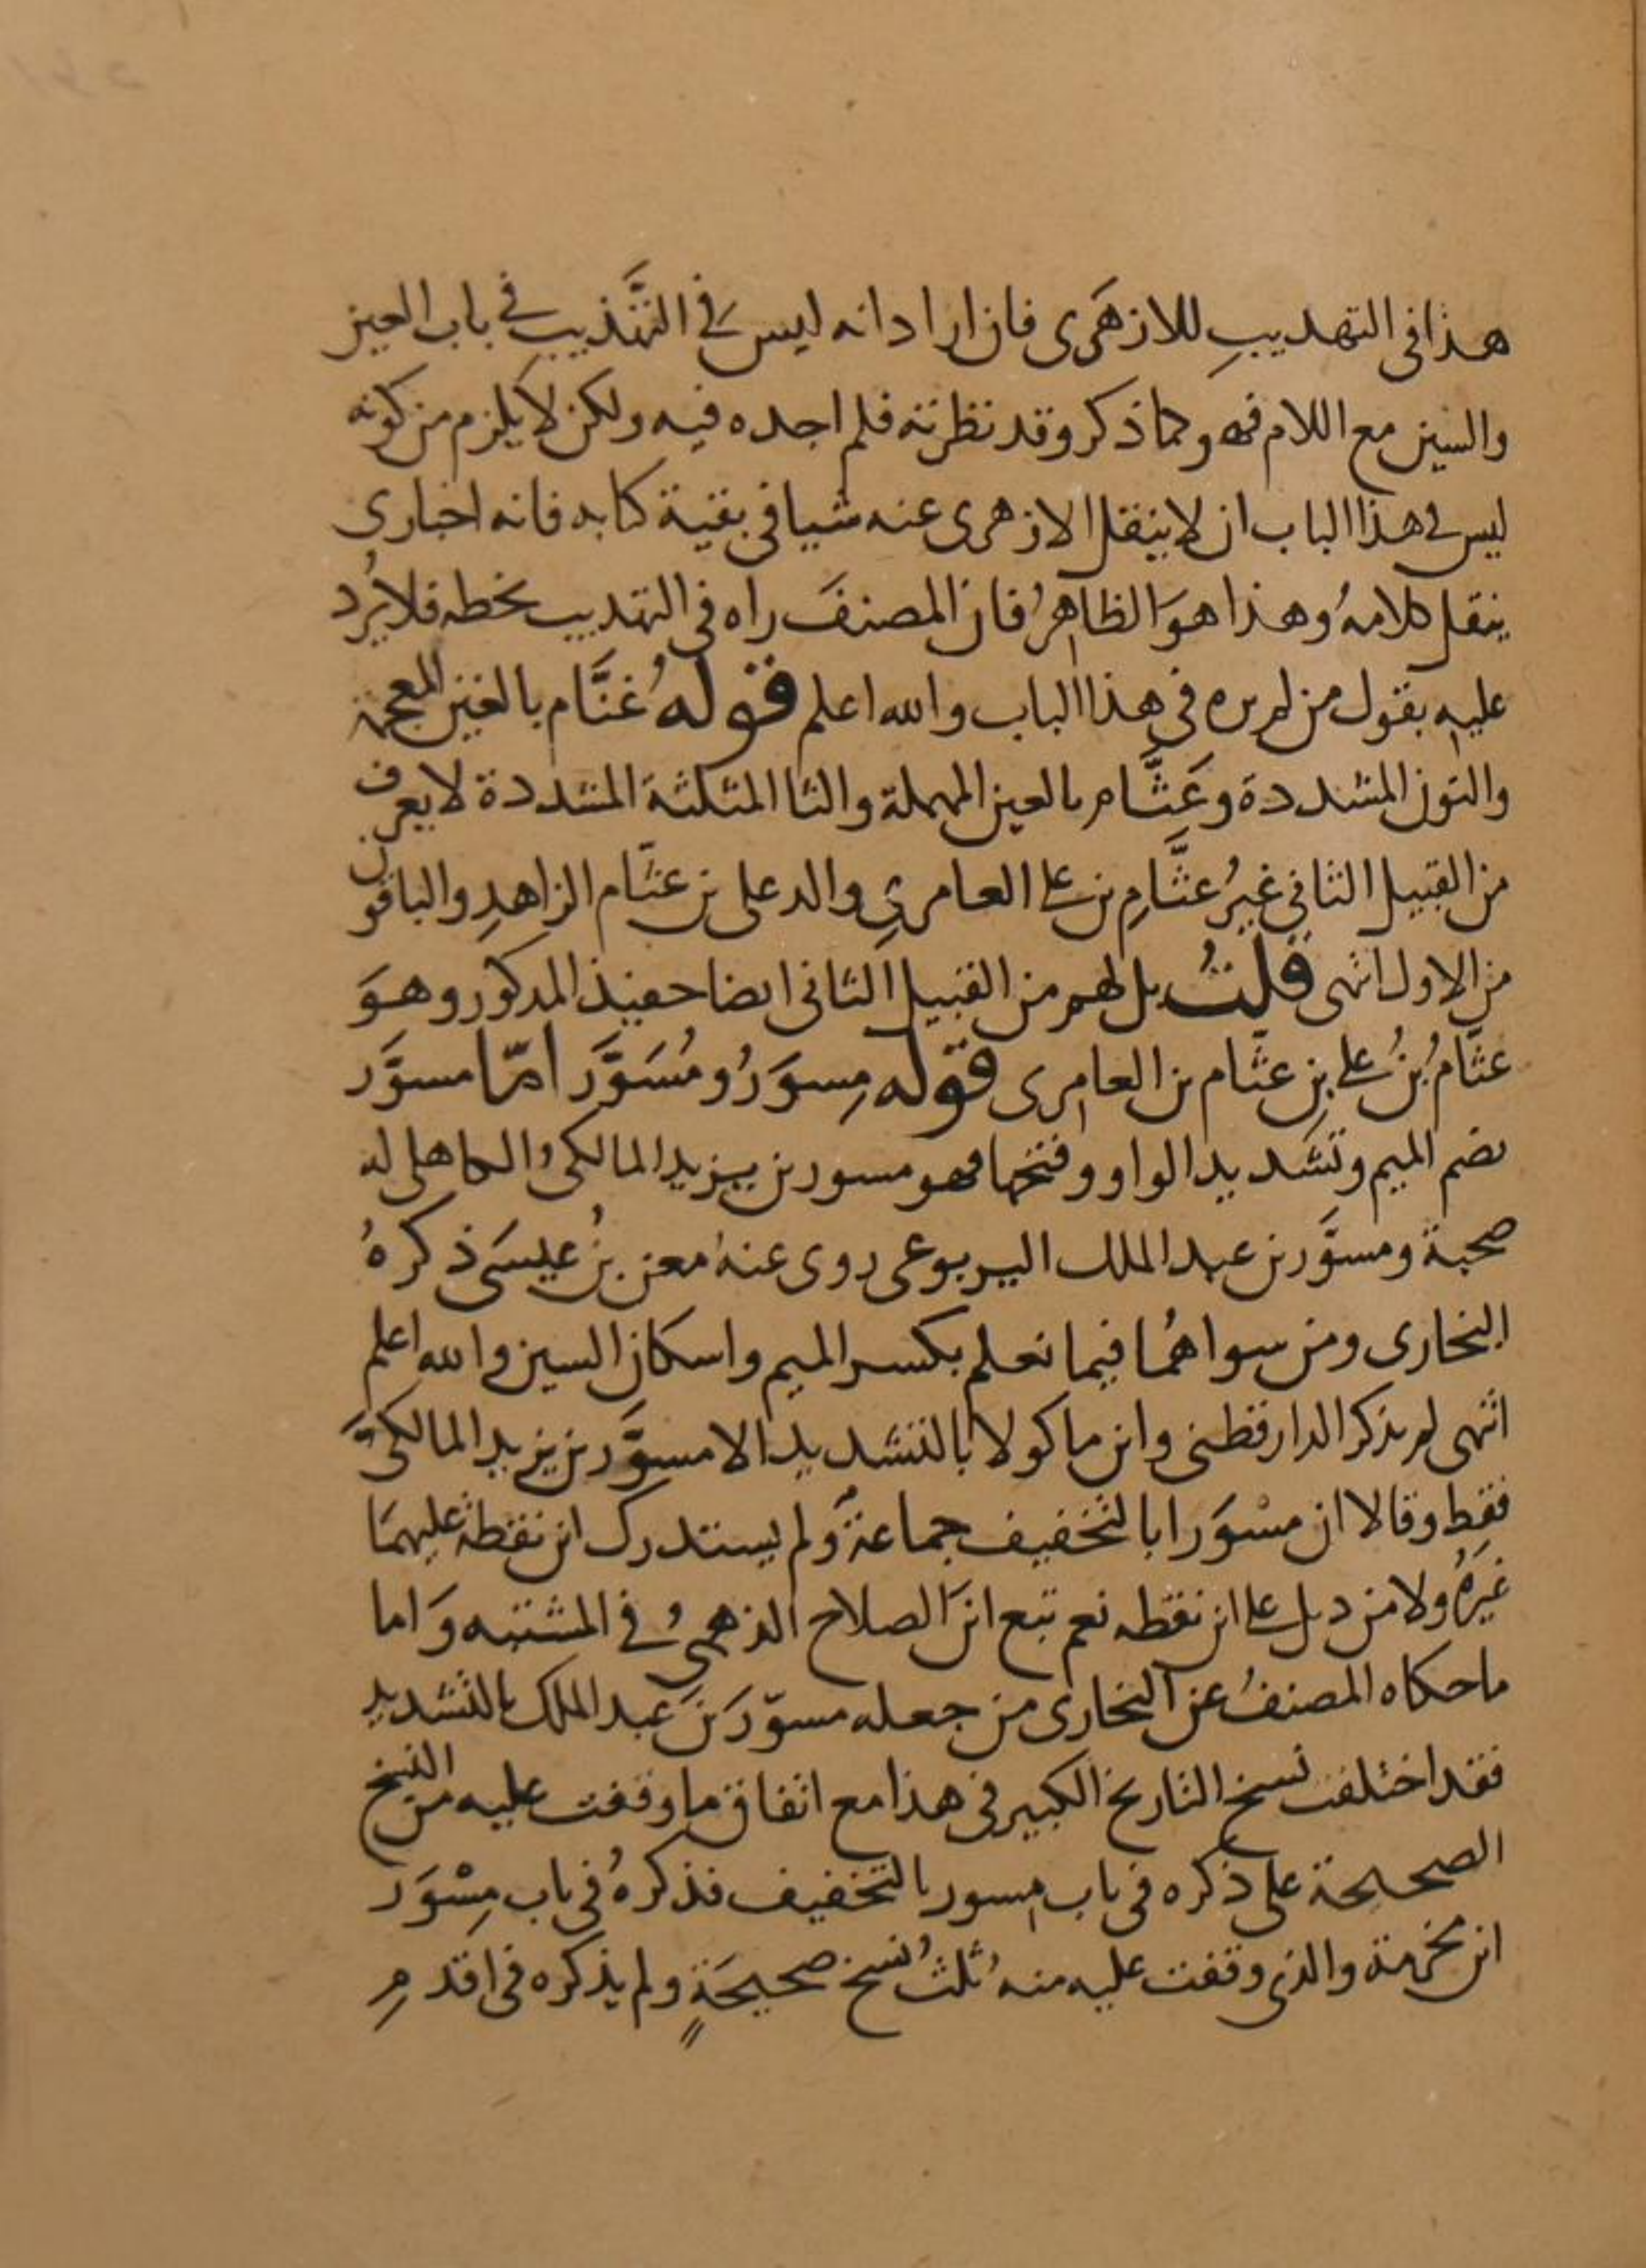 هذا فى التهديبِ للازهَرى فان ارادانه ليس فى التَّهذيب فى باب العين
والسين مع اللام فهو كما ذكر وقد نظرته فلم اجده فيه ولكن لا يلزم من كونه
ليس فى هذا الباب ان لا ينقل الازهرى عنه شيا فى بقية كتابه فانه اخبارى
ينقل كلامهُ وهذا هوَ الظاهرُ فان المصنفَ راه فى التهديب بخطه فلا يُرد
عليه بقول من لم يره فى هذا الباب والله اعلم قوله غُنَّام بالغين المعجمة
والنون المشددة وعَثَّام بالعين المهملة والثا المثلثة المشددة لا يعرف
من القبيل الثانى غيرُ عثَّامِ بن على العامرىِ والد على بن عثَّام الزاهدِ والباقون
من الاول انتهى قلتُ بل لهم من القبيل الثانى ايضا حفيذ المدكور وهوَ
عثَّامُ بنُ على بنِ عثَّام بن العامرى قوله مِسوَرُ ومُسَوَّر امّا مسوَّر
بضم الميم وتشديد الواو وفتحها فهو مسور بن يزيد المالكىُ الكاهلى له
صحبة ومسوَّر بن عبد الملك اليربوعى روى عنهُ معن بنُ عيسَى ذكرهُ
البخارى ومن سواهُما فيما نعلم بكسر الميم واسكان السين والله اعلم
انتهى لم يذكر الدارقطنى وابن ماكولا بالتشديد الا مسوَّر بن يزيد المالكىَّ
فقط وقالا ان مسْوَرا بالتخفيف جماعةٌ ولم يستدرك ابن نقطة عليهمَا
غيرَهُ ولا من ديل على ابن نقطه نعم تبع ابنَ الصلاح الذهبىُ فى المشتبه وَاما
ماحكاه المصنفُ عن البخارى من جعله مسوّرَ بنَ عبد الملك بالتشديد
فقد اختلفت نسخ التاريخ الكبير فى هذا مع اتفاق ما وقفت عليه من النسخ
الصحيحة على ذكره فى باب مسور بالتخفيف فذكرهُ فى باب مِسْوَر
ابن مخرمة والذى وقفت عليه منه ثلثُ نُسخ صحيحَةٍ ولم يذكره فى اقدمِ